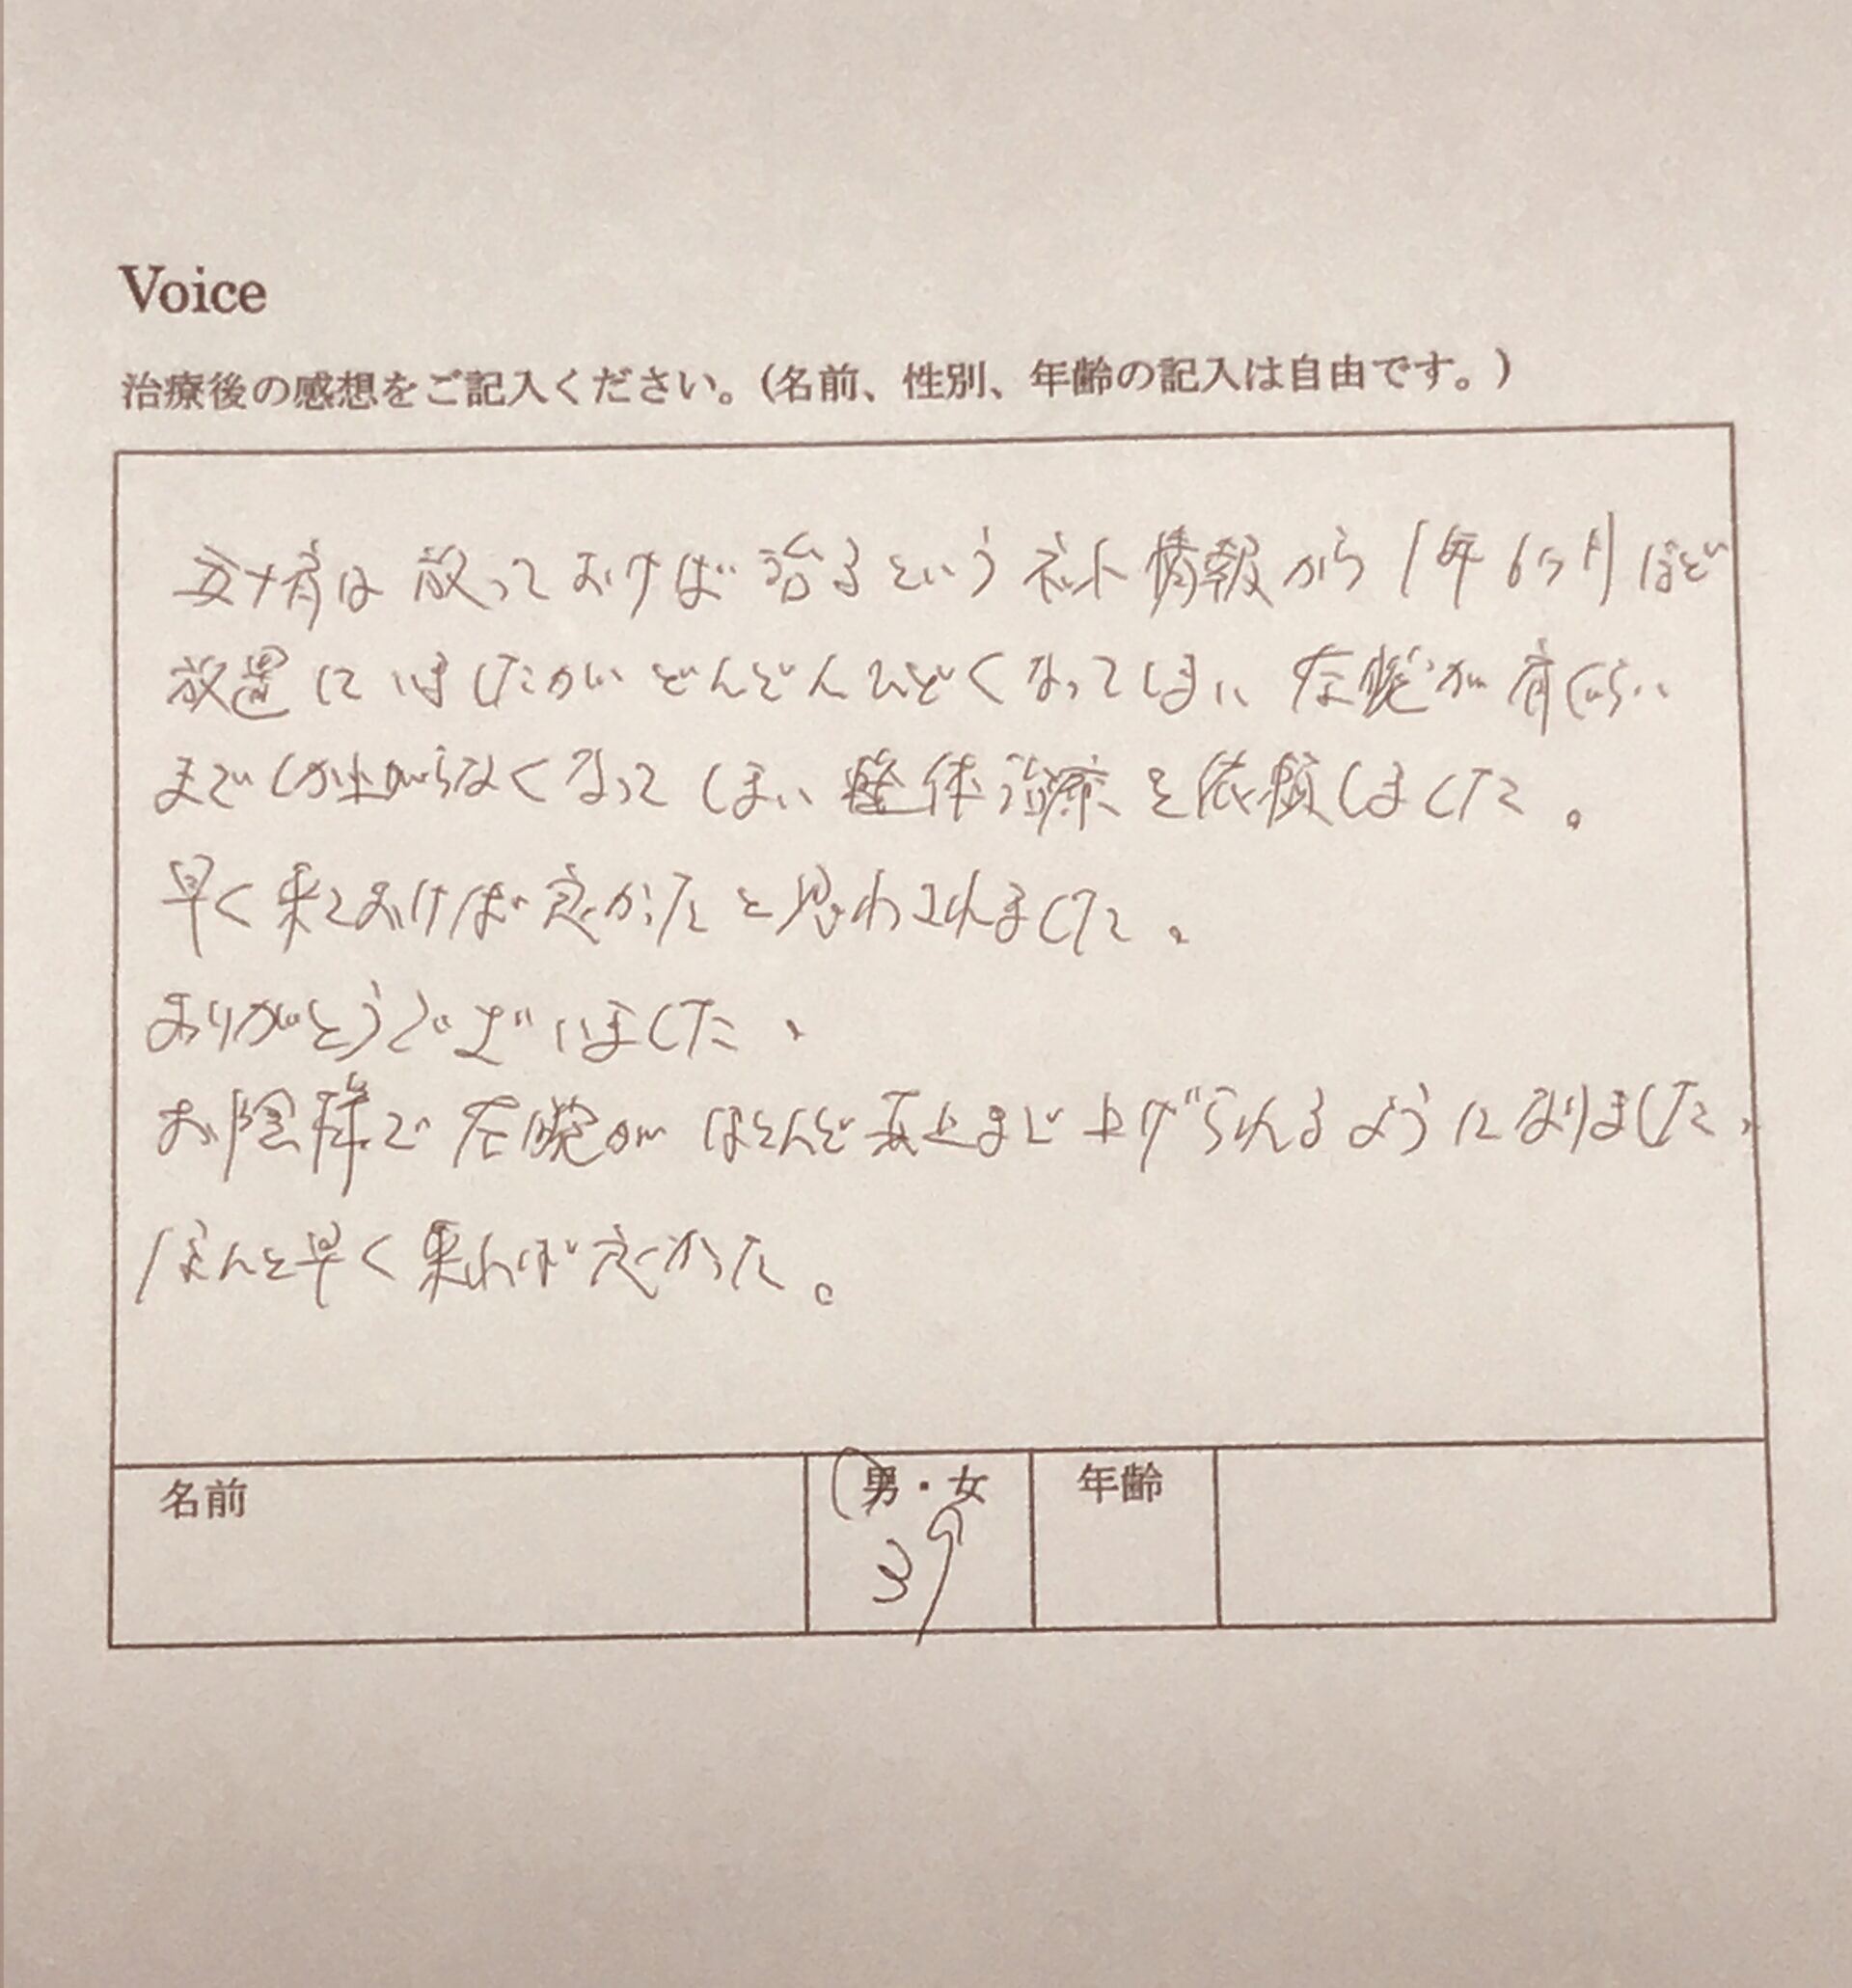 Voice
治療後の感想をご記入ください。(名前、性別、年齢の記入は自由です。)
五十肩は放っておけば治るというネット情報から1年6ヶ月ほど
放置していましたがどんどんひどくなってしまい左腕が肩くらい
までしか上がらなくなってしまい整体治療を依頼しました。
早く来ておけば良かったと思わされました。
ありがとうございました。
お陰様で左腕がほとんど真上まで上げられるようになりました。
ほんと早く来れば良かった。
名前
男・女
年齢